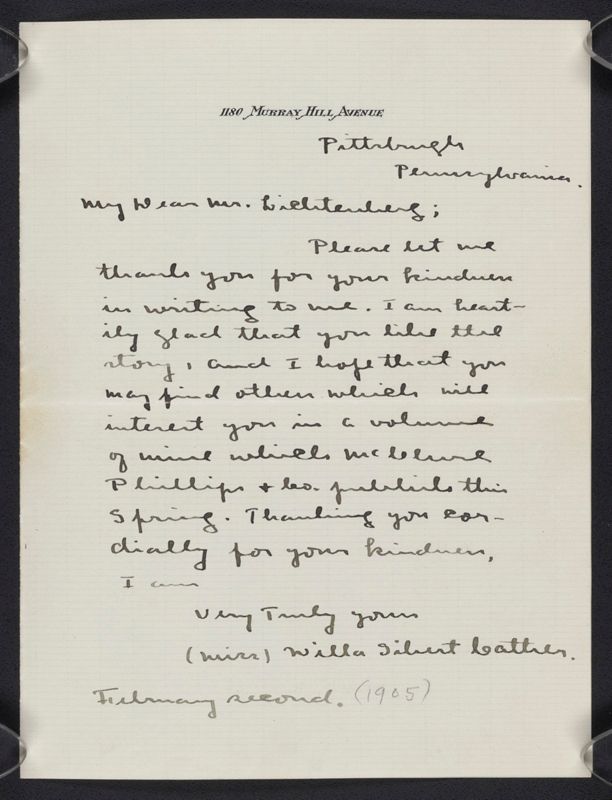 1180 Murray Hill Avenue
Pittsburgh
Pennsylvania.
My Dear Mr. Lichtenberg;
Please let me
thank you for your kindness
in writing to me. I am heart-
ily glad that you like the
story, and I hope that you
may find others which will
interest you in a volume
of mine which McClure
Phillips & Co. publish this
Spring. Thanking you cor-
dially for your kindness,
I am
Very Truly yours
(Miss) Willa Sibert Cather.
February second. (1905)